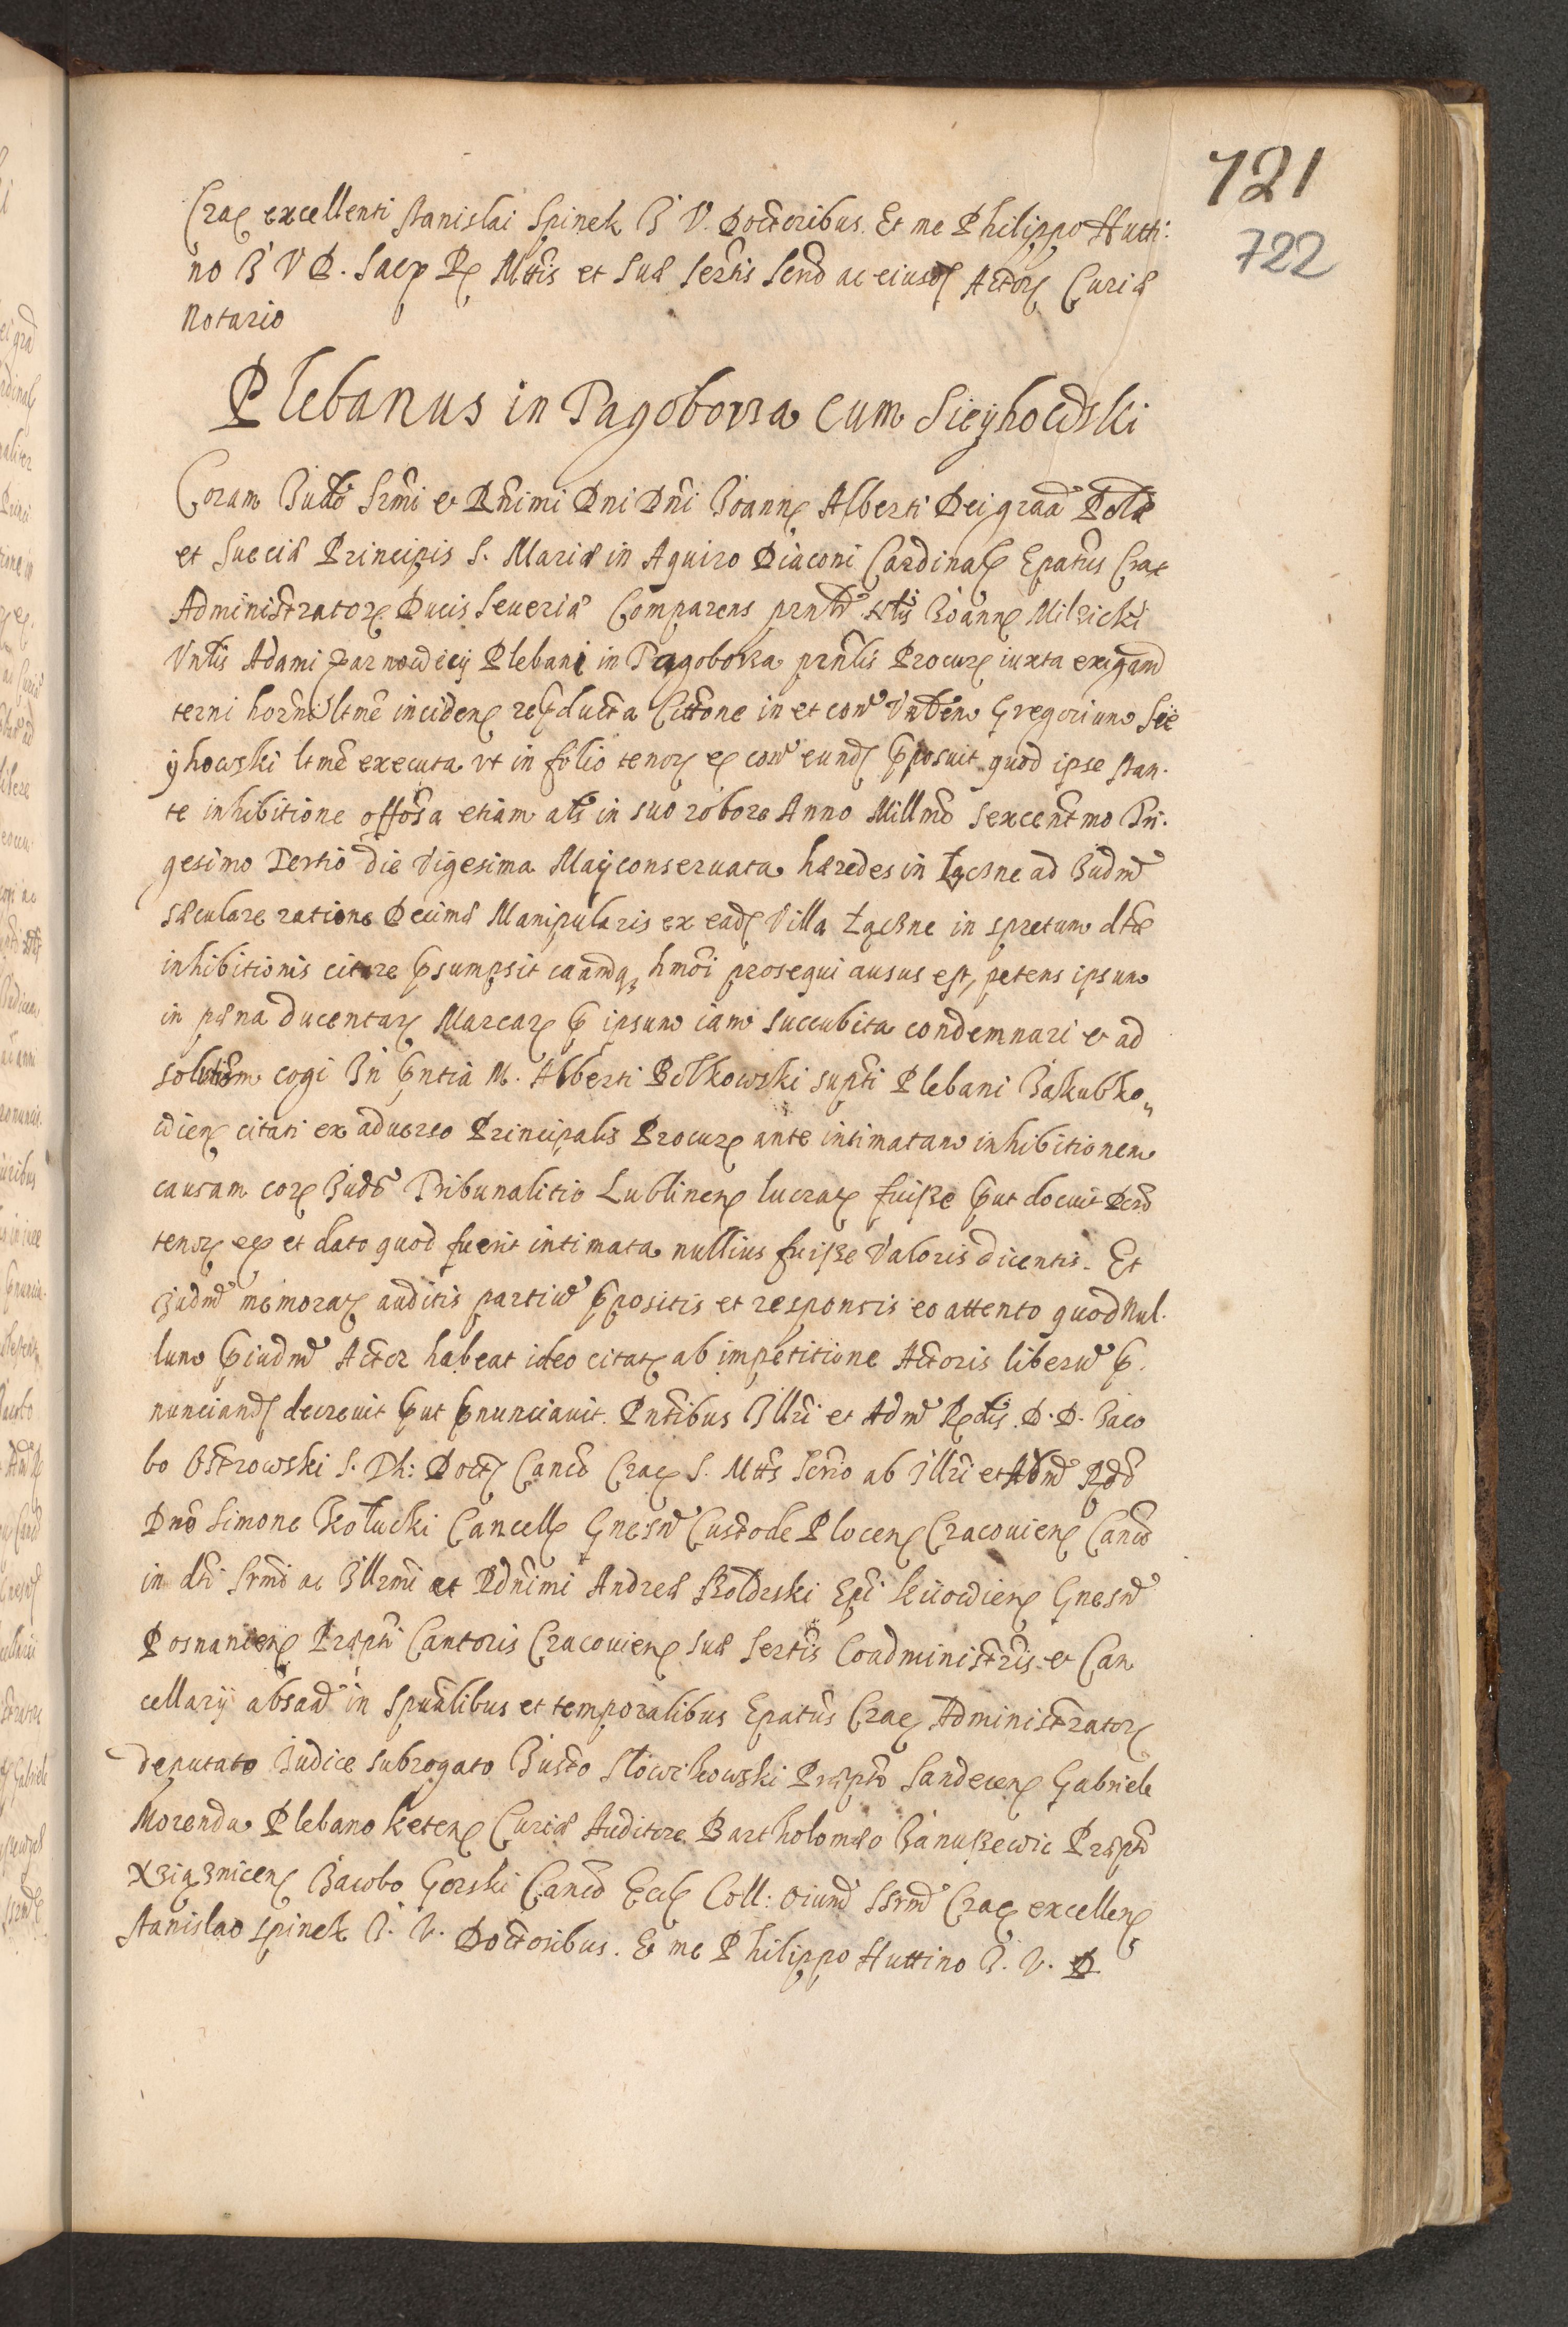 721
722
Crac excellenti Stanislai Spinek J V. Doctoribus. Et me Philippo Hutti:
no J V D. Sacp R Mttis et Suæ Sertis Serio ac eiusd Actor Curiæ
Notario
Plebanus in Pagoborza cum Sieyhowski
Coram Judō Srmi et Rñimi Dni Dñi Joann Alberti Dei graā Polæ
et Sueciæ Principis S. Mariæ in Aquiro Diaconi Cardinal Epatus Crac
Administrator Ducis Seueriæ Comparens Joann Milzicki
Vntis Adami Plebani in Pagoborza prñtis Procur iuxta exigam
terni inciden ducta Cittōne in et con Gregorium Sie
yhowski ltmē executa vt in folio tenor con eund pposuit quod ipse stan.
te inhibitione offōsa etiam als in suo robore Anno Millmō Sexcentmo Tri.
gesimo Tertio die Vigesima Maij conseruata hæredes in Łączne ad Judm
sæculare ratione Decimæ Manipularis ex ead Villa Łączne in spretum dtæ
inhibitionis citare psumpsit caamq hmōi prosequi ausus est, petens ipsum
in pæna ducentar Marcar p ipsum iam succubita condemnari et ad
solutōm cogi In pntia M. Alberti Bolkowski supti Plebani Jakubko„
wien citati ex aduerso Principalis Procur ante intimatam inhibitionem
causam cor Judō Tribunalitio Lublinen lucrat fuiße put docuit Dcro
tenor et dato quod fuerit intimata nullius fuiße Valoris dicentis. Et
Judm memorat auditis partiu ppositis et responsis eo attento quod Nul.
lum piudm Actor habeat ideo citat ab impetitione Actoris liberu p.
nunciand decreuit put pnunciauit. Pntibus Illri et Adm Rdis. D. D. Jaco
bo Ostrowski S. Th: Doct Canco Crac S. Mtts Scrio ab Illri et Adm Rdo
Dno Simone Kołucki Cancell Gnesn Custode Plocen Cracouien Canco
in dti Srmi ac Illrmi et Rdnimi Andreæ Szoldrski Epi kiiowien Gnesn
Posnanien Præpti Cantoris Cracouien Suæ Sertis Coadministris et Can
cellarij absad in Spualibus et temporalibus Epatus Crac Administrator
deputato Judice subrogato Justo Słowikowski Præpto Sandecen Gabriele
Morenda Plebano keten Curiæ Auditore Bartholomæo Janußewic Præpto
Xziąznicen Jacobo Gorski Canco Eccle Coll: oium Ssrm Crac excellen
Stanislao Spinek J. V. Doctoribus. Et me Philippo Huttino J. V. D